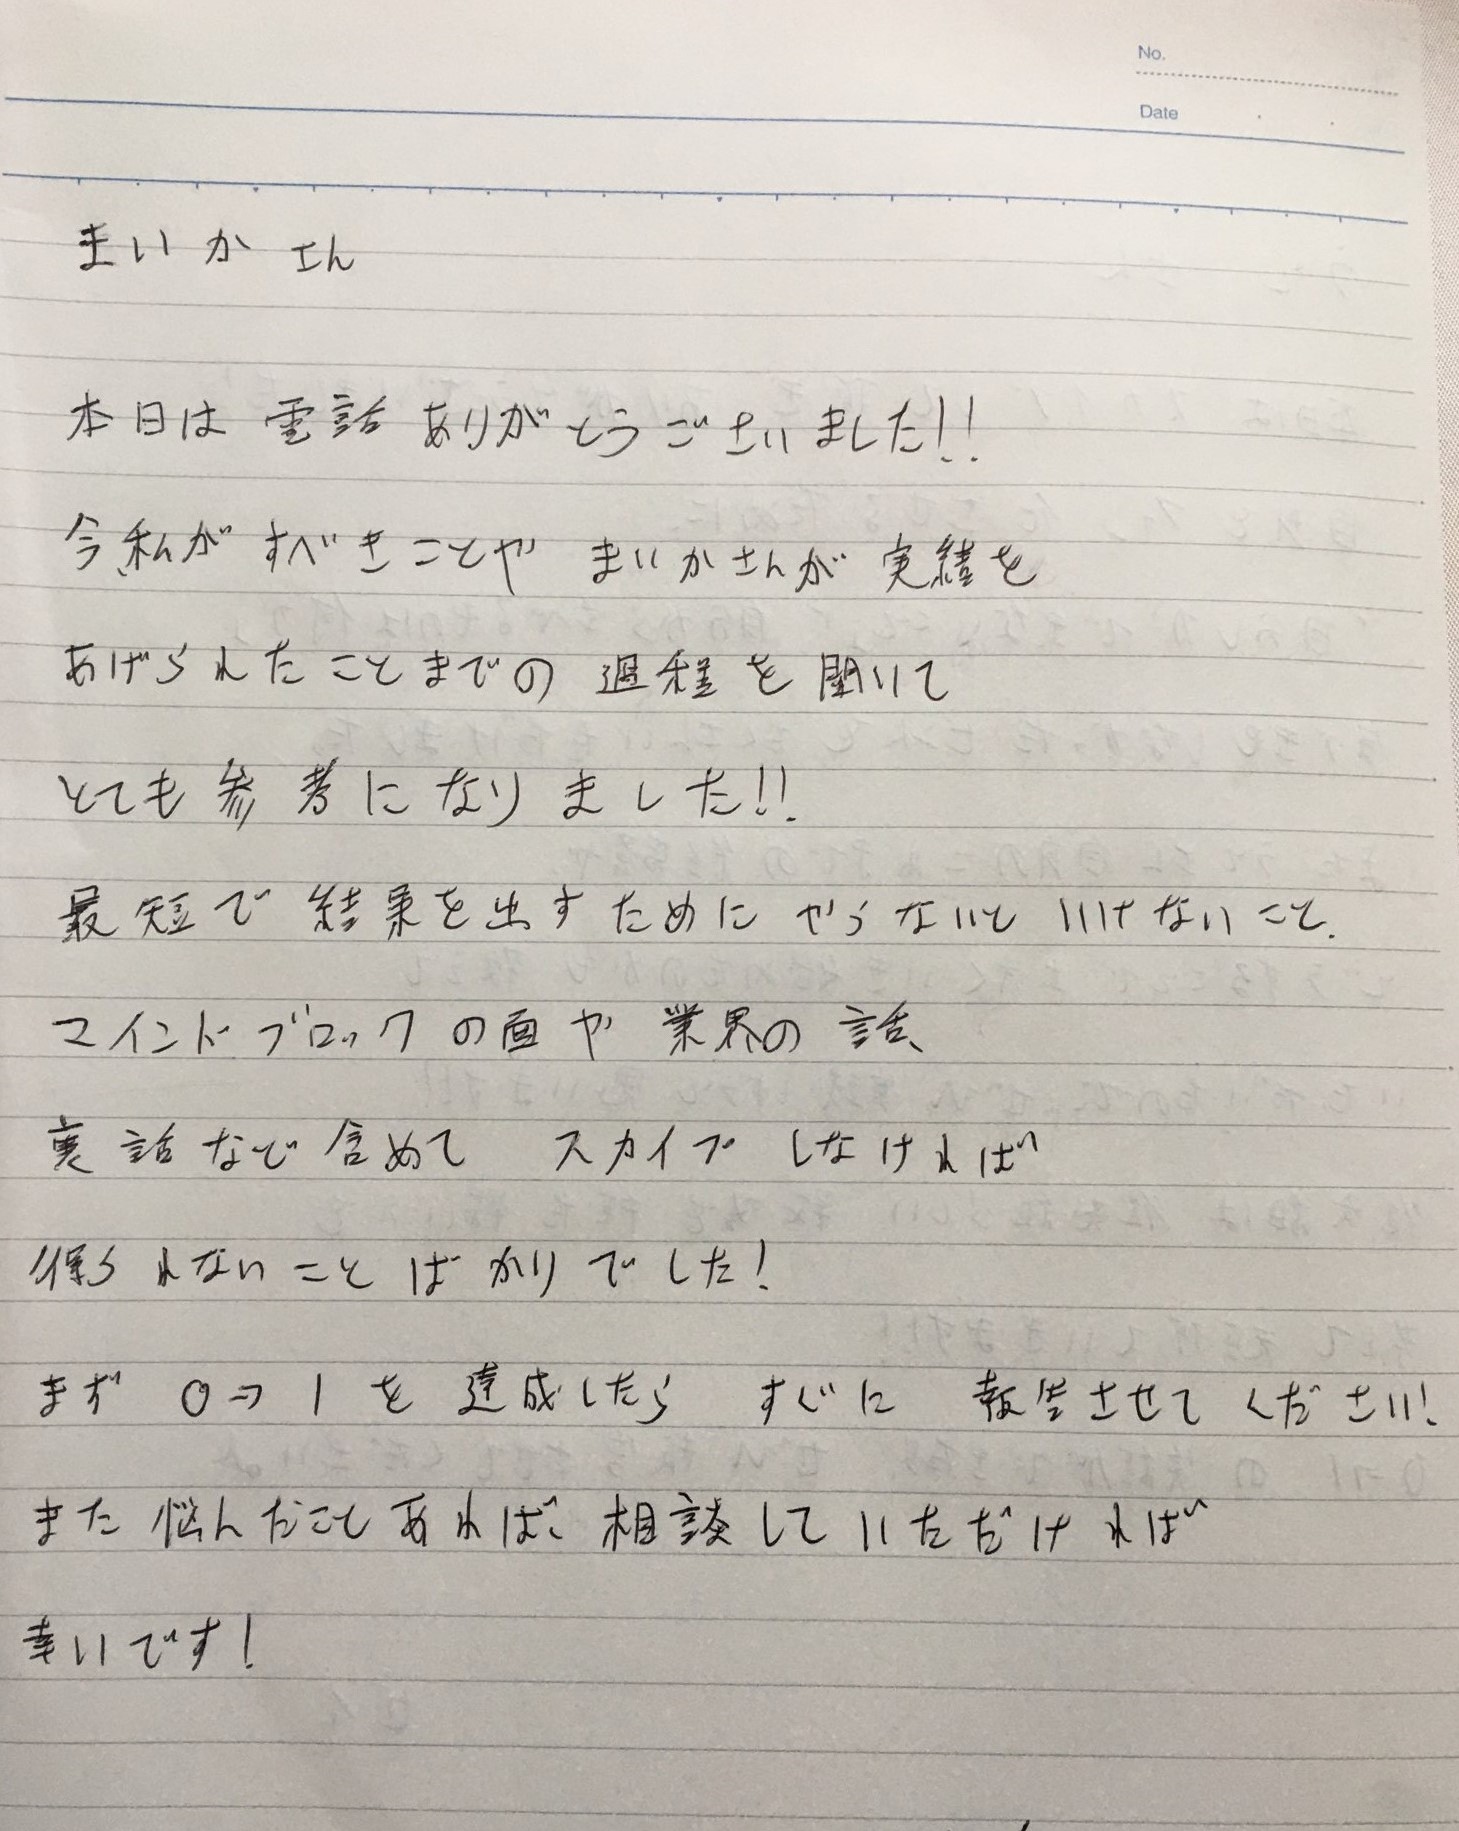 No.
Date
まいかさん
本日は電話ありがとうございました!!
今、私がすべきことや まいかさんが実績を
あげられたことまでの過程を聞いて
とても参考になりました!!
最短で結果を出すためにやらないといけないこと、
マインドブロックの面や業界の話、
裏話など含めて スカイプしなければ
得られないことばかりでした!
まず 0→1を達成したら すぐに 報告させてください!
また悩んだことあれば、相談していただければ
幸いです!